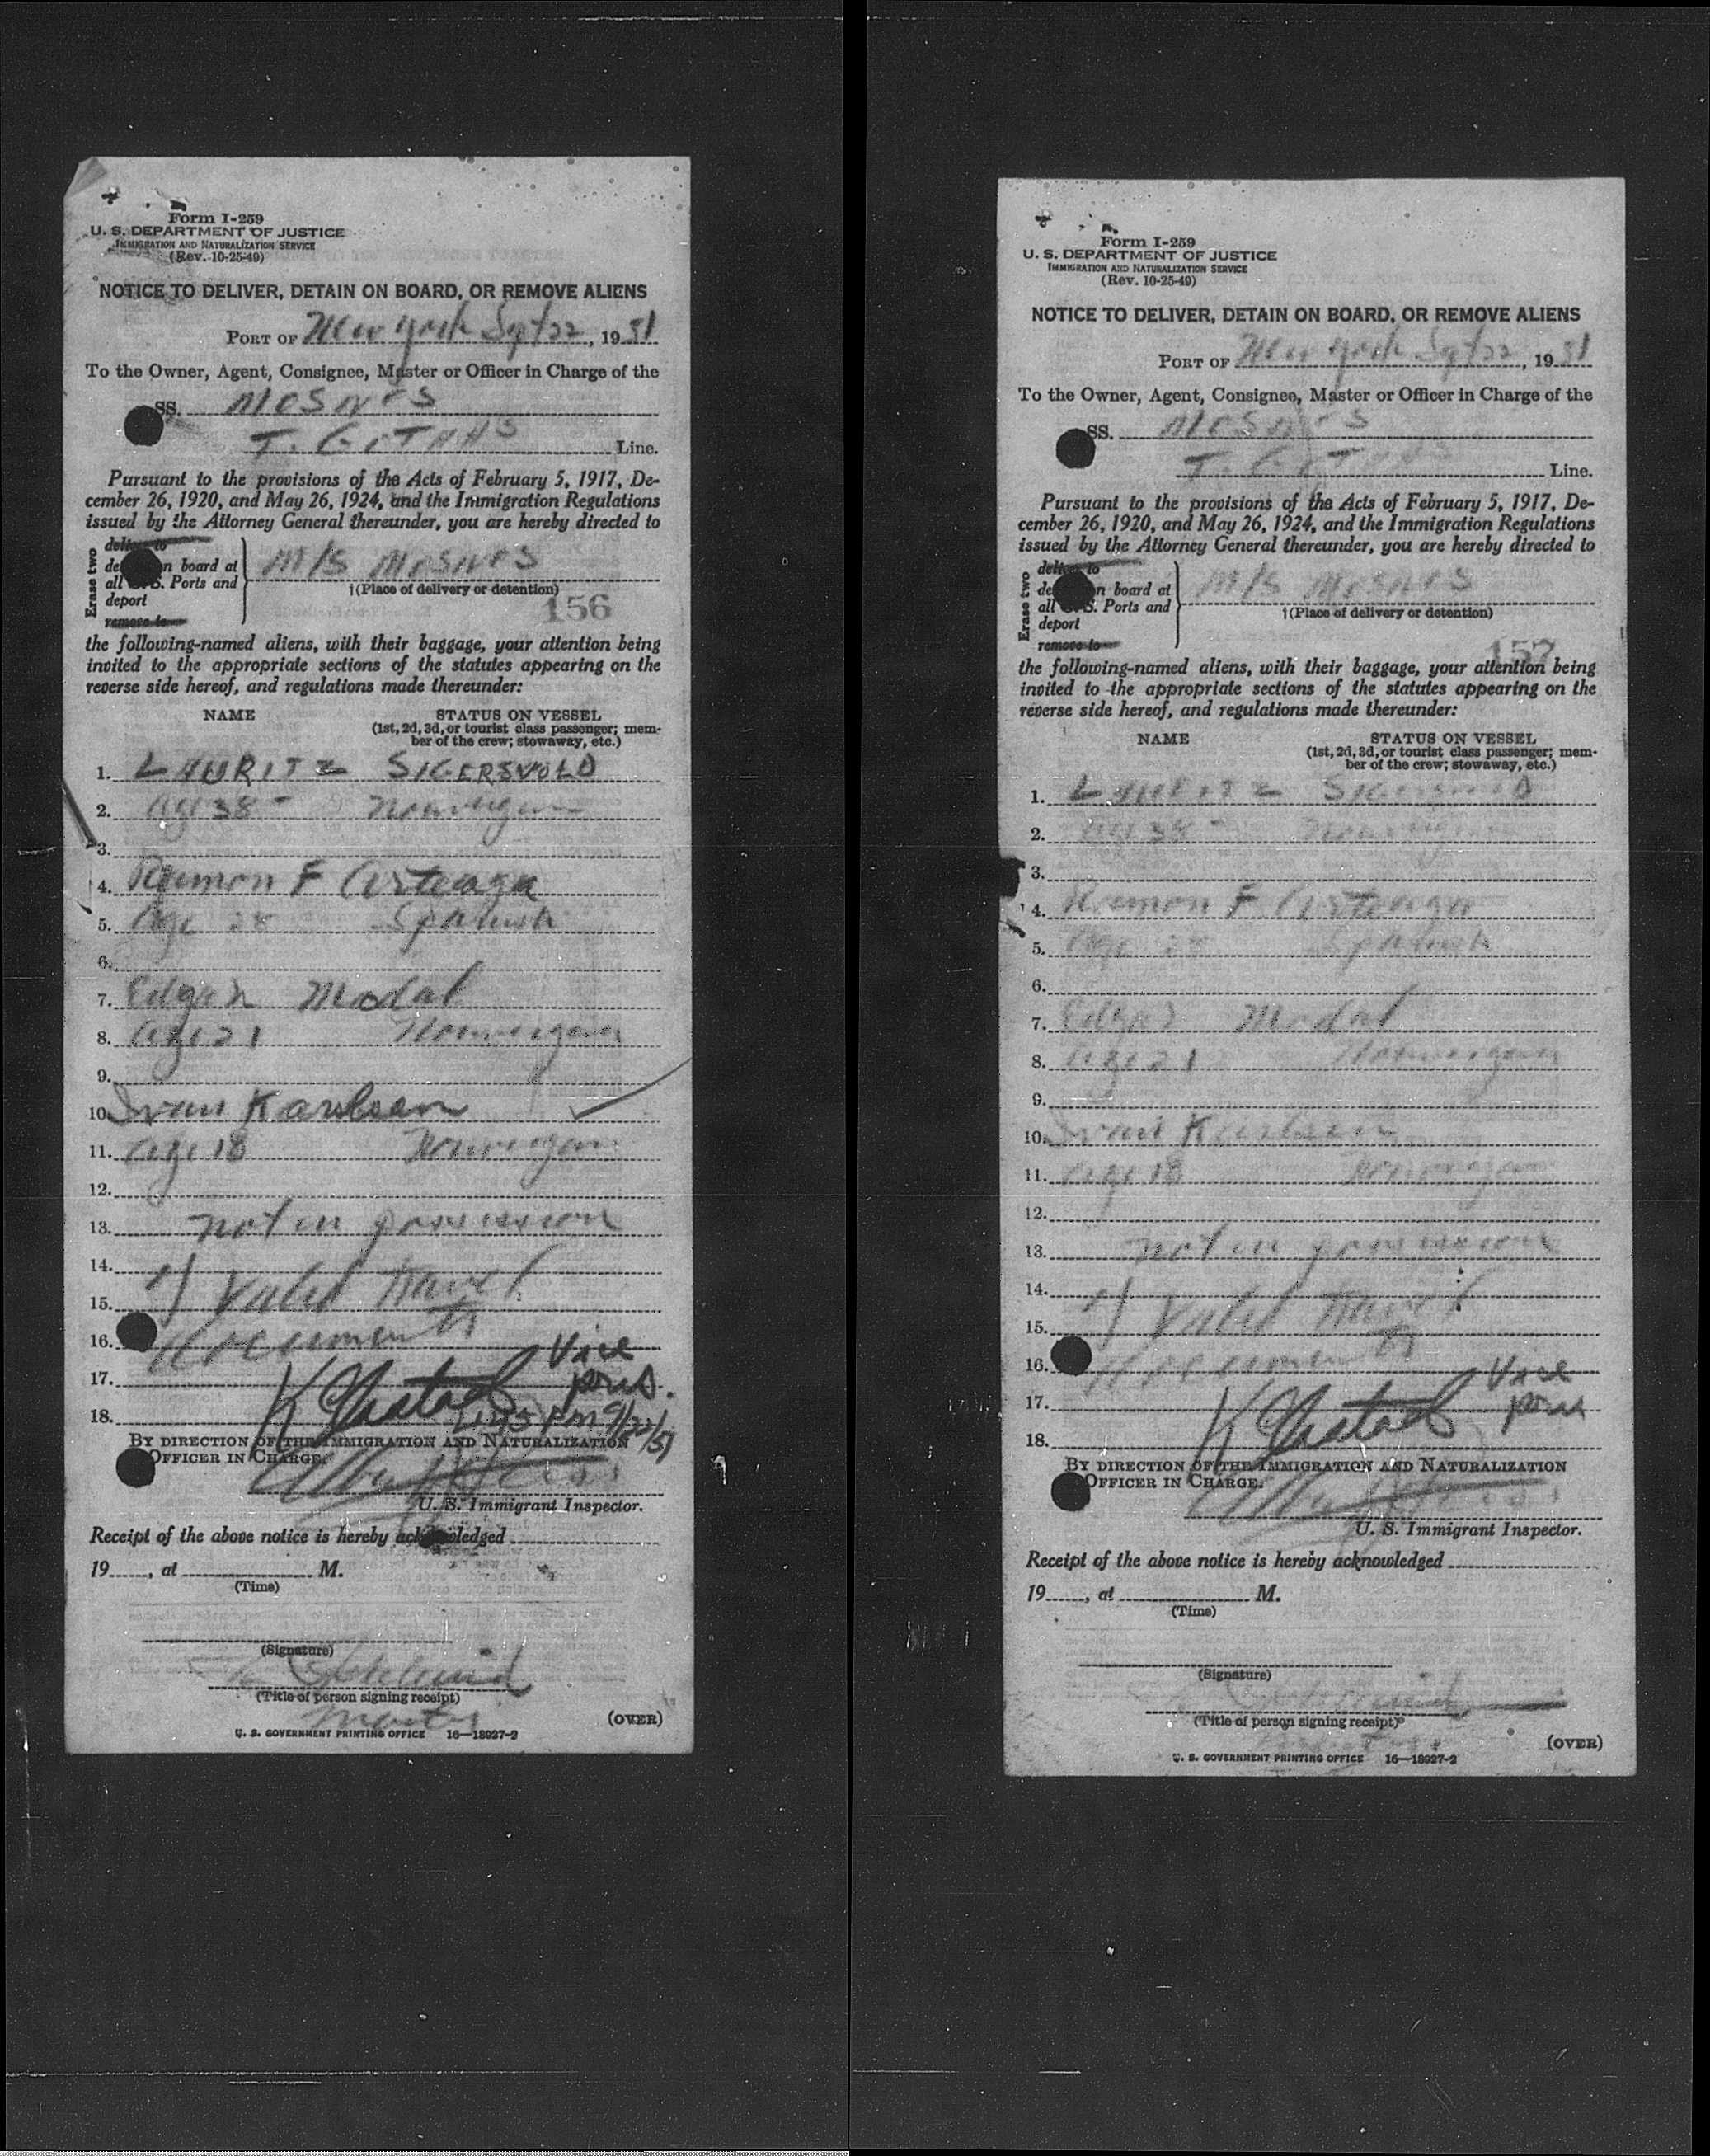 Form I-259
U. S. DEPARTMENT OF JUSTICE
IMMIGRATION AND NATURALIZATION SERVICE
(Rev. 10-25-49)
NOTICE TO DELIVER, DETAIN ON BOARD, OR REMOVE ALIENS
PORT OF New York Sept 22, 1951
To the Owner, Agent, Consignee, Master or Officer in Charge of the
SS. MOSNES
Line.
Pursuant to the provisions of the Acts of February 5, 1917, De-
cember 26, 1920, and May 26, 1924, and the Immigration Regulations
issued by the Attorney General thereunder, you are hereby directed to
Erase two
deliver to
n board at
all S. Ports and
deport
remove to
M/S MOSNES
†(Place of delivery or detention)
156
the following-named aliens, with their baggage, your attention being
invited to the appropriate sections of the statutes appearing on the
reverse side hereof, and regulations made thereunder:
NAME STATUS ON VESSEL
(1st, 2d, 3d, or tourist class passenger; mem-
ber of the crew; stowaway, etc.)
1. LAURITZ SIGERSVOLD
2. age 38 - Norwegian
3.
4. Ramon F Arteaga
5. Age 28 Spanish
6.
7. Edgar Modal
8. age 21 Norwegian
9.
10. Ivan Karlsen
11. age 18 Norwegian
12.
13. not in possession
14.
15. of valid travel
16. documents
Vice
17. pres.
18. PM 9/22/51
BY DIRECTION OF THE IMMIGRATION AND NATURALIZATION
OFFICER IN CHARGE.
U. S. Immigrant Inspector.
Receipt of the above notice is hereby acknowledged
19 , at M.
(Time)
(Signature)
(Title of person signing receipt)
Master
(OVER)
U. S. GOVERNMENT PRINTING OFFICE 16—18927-2
Form I-259
U. S. DEPARTMENT OF JUSTICE
IMMIGRATION AND NATURALIZATION SERVICE
(Rev. 10-25-49)
NOTICE TO DELIVER, DETAIN ON BOARD, OR REMOVE ALIENS
PORT OF New York Sept 22, 1951
To the Owner, Agent, Consignee, Master or Officer in Charge of the
SS. MOSNES
Line.
Pursuant to the provisions of the Acts of February 5, 1917, De-
cember 26, 1920, and May 26, 1924, and the Immigration Regulations
issued by the Attorney General thereunder, you are hereby directed to
Erase two
deliver to
n board at
all S. Ports and
deport
remove to
M/S MOSNES
†(Place of delivery or detention)
157
the following-named aliens, with their baggage, your attention being
invited to the appropriate sections of the statutes appearing on the
reverse side hereof, and regulations made thereunder:
NAME STATUS ON VESSEL
(1st, 2d, 3d, or tourist class passenger; mem-
ber of the crew; stowaway, etc.)
1. LAURITZ SIGERSVOLD
2. age 38 - Norwegian
3.
4. Ramon F Arteaga
5. Age 28 Spanish
6.
7. Edgar Modal
8. age 21 Norwegian
9.
10. Ivan Karlsen
11. age 18 Norwegian
12.
13. not in possession
14.
15. of valid travel
16. documents
Vice
17. pres
18.
BY DIRECTION OF THE IMMIGRATION AND NATURALIZATION
OFFICER IN CHARGE.
U. S. Immigrant Inspector.
Receipt of the above notice is hereby acknowledged
19 , at M.
(Time)
(Signature)
(Title of person signing receipt)
(OVER)
U. S. GOVERNMENT PRINTING OFFICE 16—18927-2